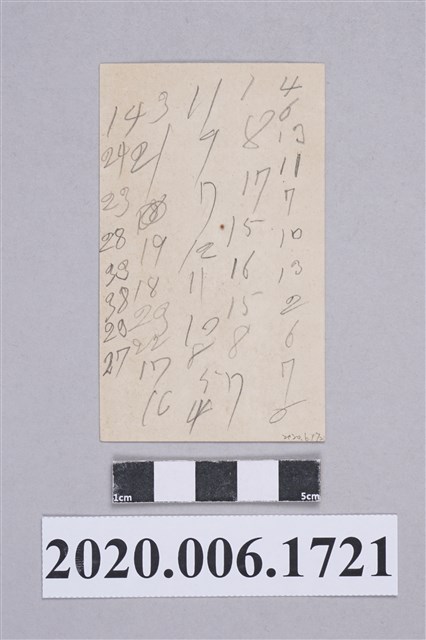 14 3 11 1 4
6
24 21 9 8 13
11
23 7 17 7
28 19 12 15 10
33 18 11 16 13
38 23 15 2
20 22 10 8 6
27 17 8 7
16 4 5 17 6
1cm 5cm
2020.006.1721